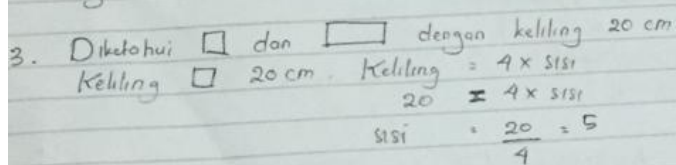 3. Diketahui □ dan ▭ dengan keliling 20 cm
Keliling □ 20 cm. Keliling = 4 x sisi
20 = 4 x sisi
sisi = 20/4 = 5